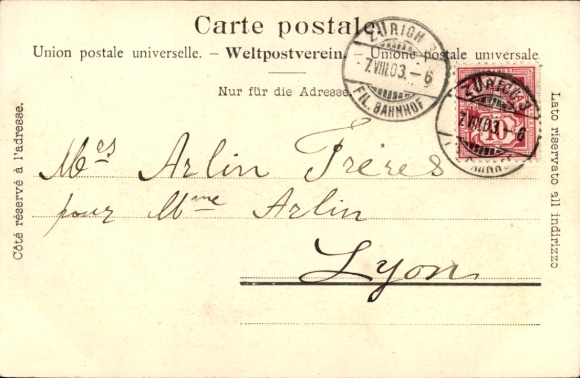 Carte postale.
Union postale universelle. – Weltpostverein. – Unione postale universale
Nur für die Adresse.
ZÜRICH
7.VIII.03.–6
FIL. BAHNHOF
ZÜRICH
7.VIII.03.–6
10
Côté réservé à l'adresse.
Lato riservato all indirizzo
Mrs Arlin Frères
pour Mme Arlin
Lyon